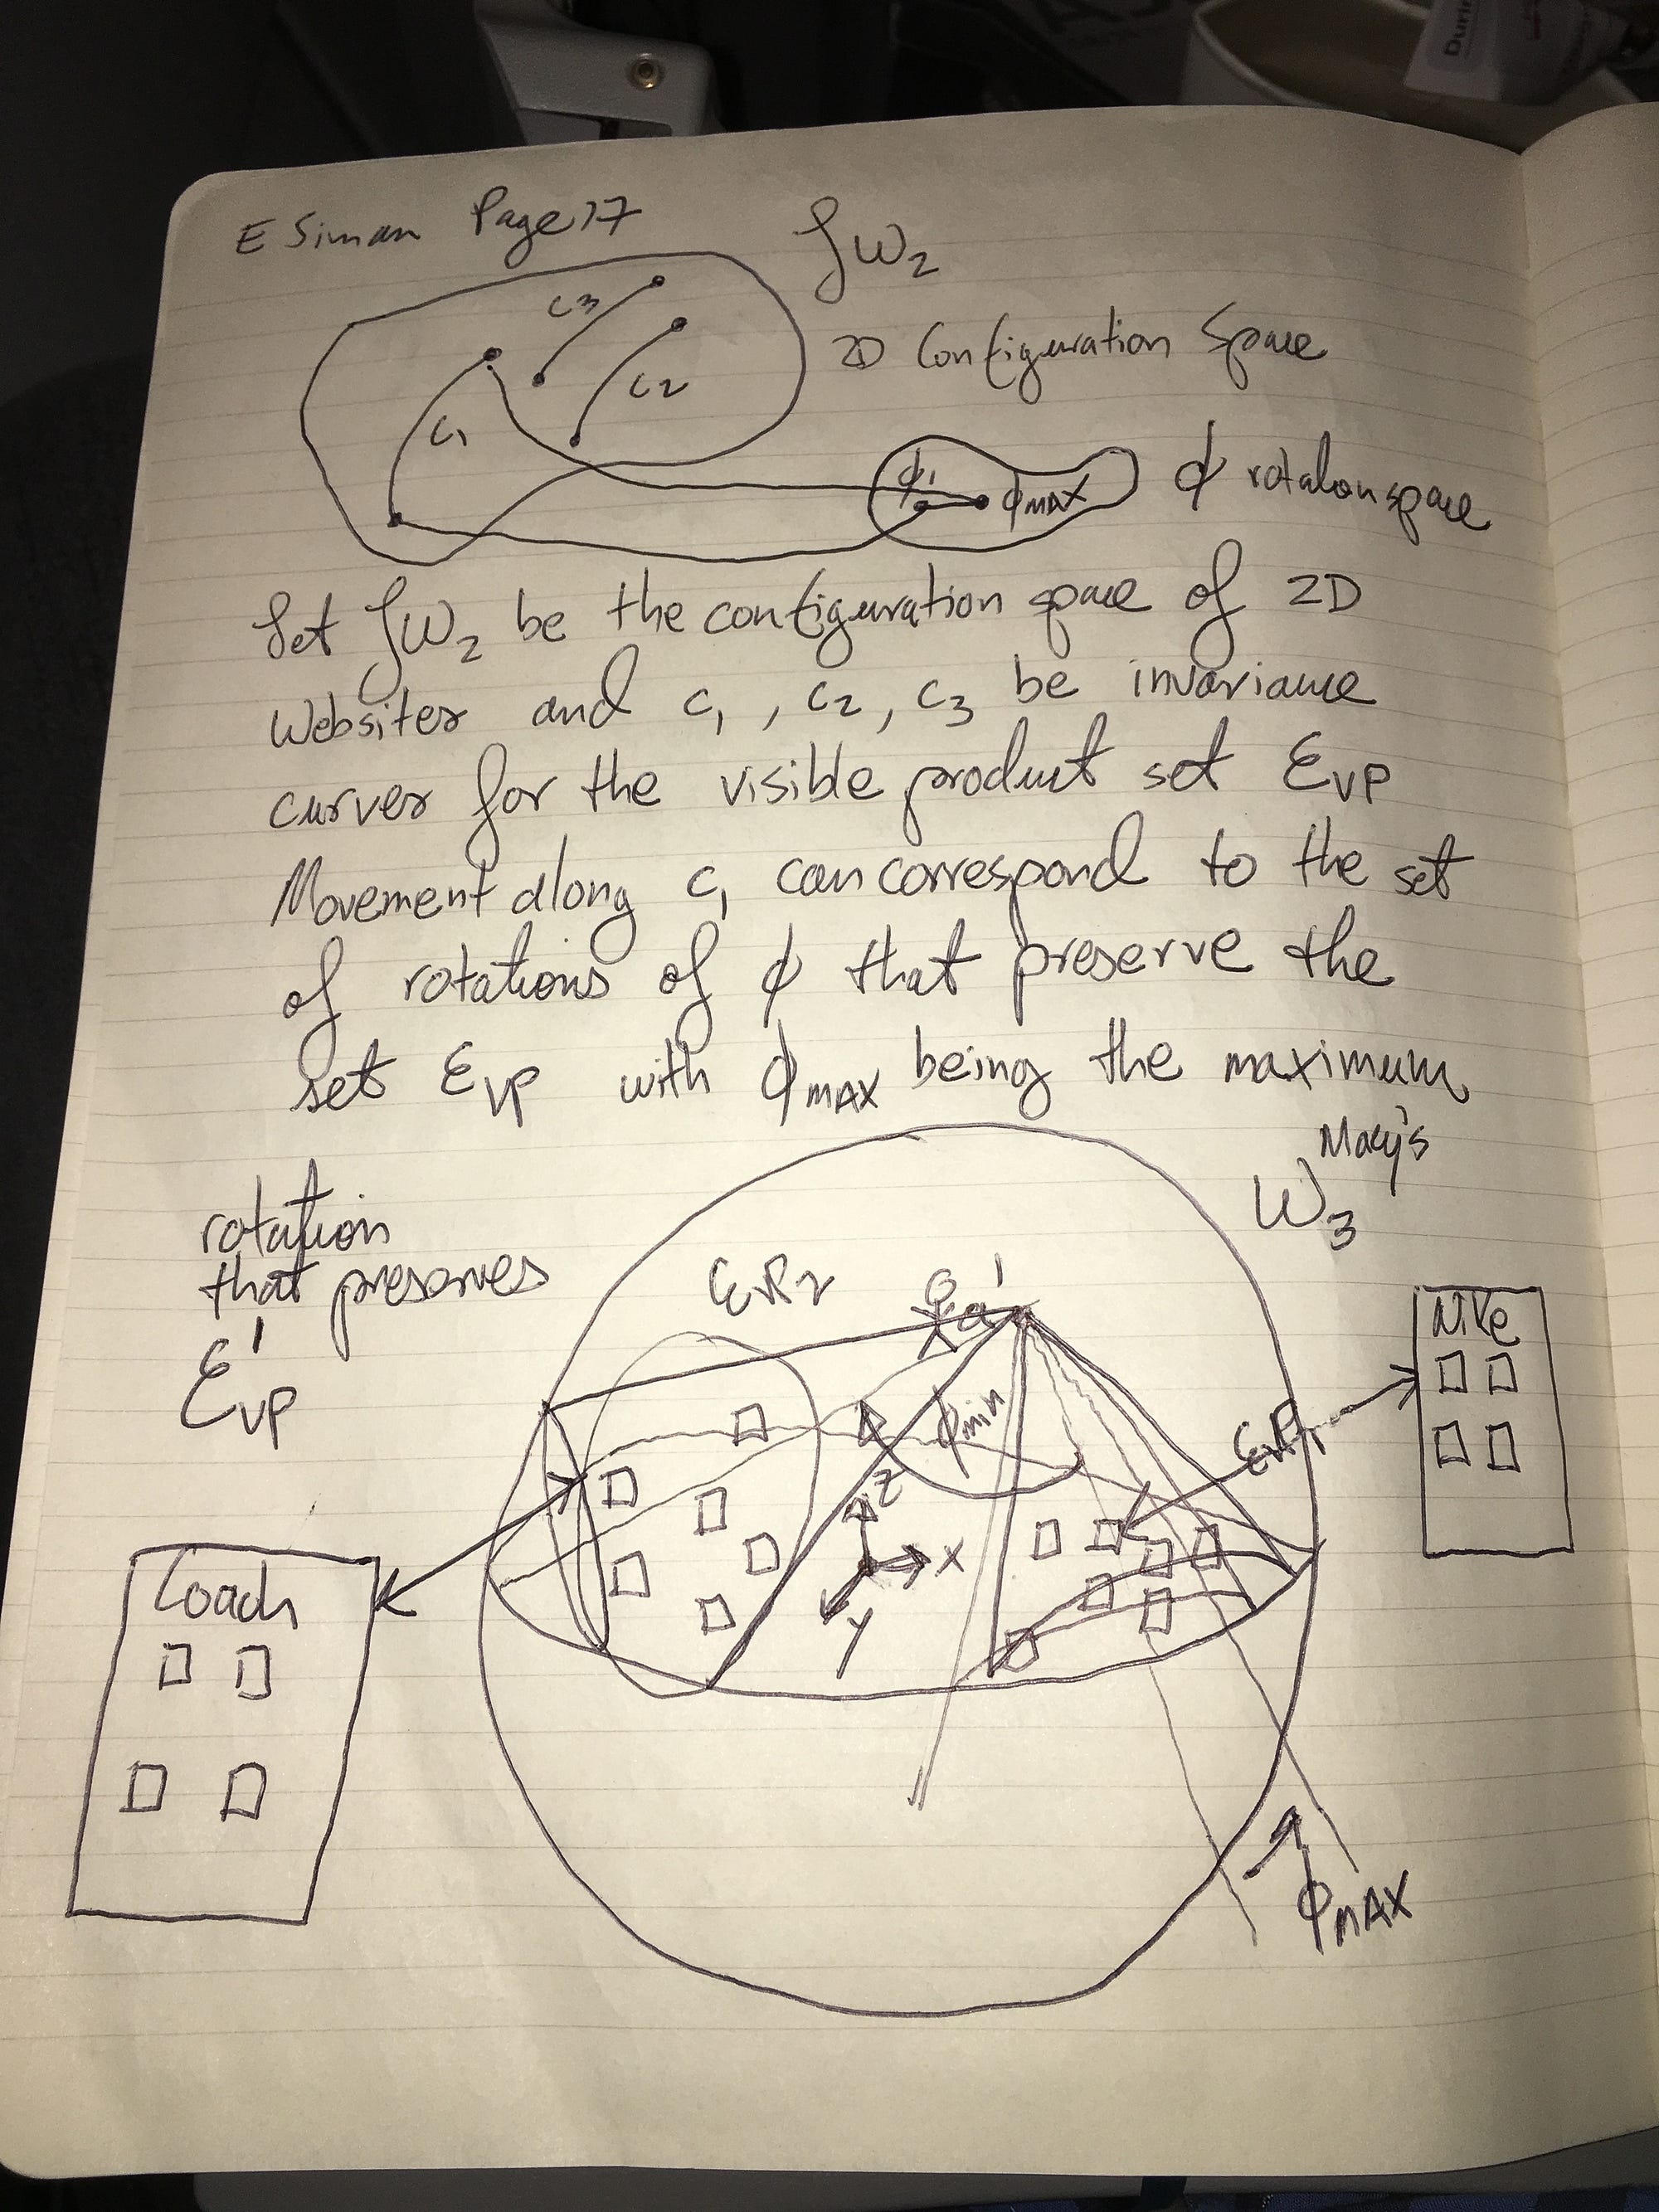 E Siman Page 17
C3
C2
C1
ʃW2
2D Configuration Space
ϕ1
ϕMAX
ϕ rotation space
Let ʃW2 be the configuration space of 2D
websites and C1, C2, C3 be invariance
curves for the visible product set EVP
Movement along C1 can correspond to the set
of rotations of ϕ that preserve the
set EVP with ϕMAX being the maximum
rotation
that preserves
E'VP
Macy's
W3
EVP2
ϕmin
Z
X
Y
EVP1
Nike
Coach
ϕMAX